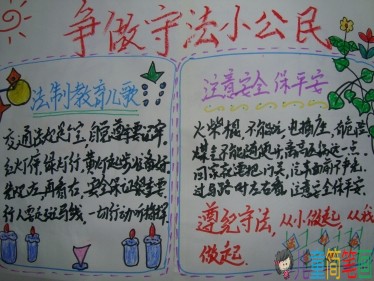 争做守法小公民
法制教育儿歌
交通法规是个宝，自觉遵守要记牢，
红灯停，绿灯行，黄灯亮起准备好，
先观左，再看右，安全保证最重要
行人要走斑马线，一切行动听指挥
注意安全 保平安
火柴棍，不能玩，电插座，
煤气不能随便开，离
回家
过马路时左右看，注意安全保平安。
遵纪守法，从小做起，从我
做起。
儿童简笔画